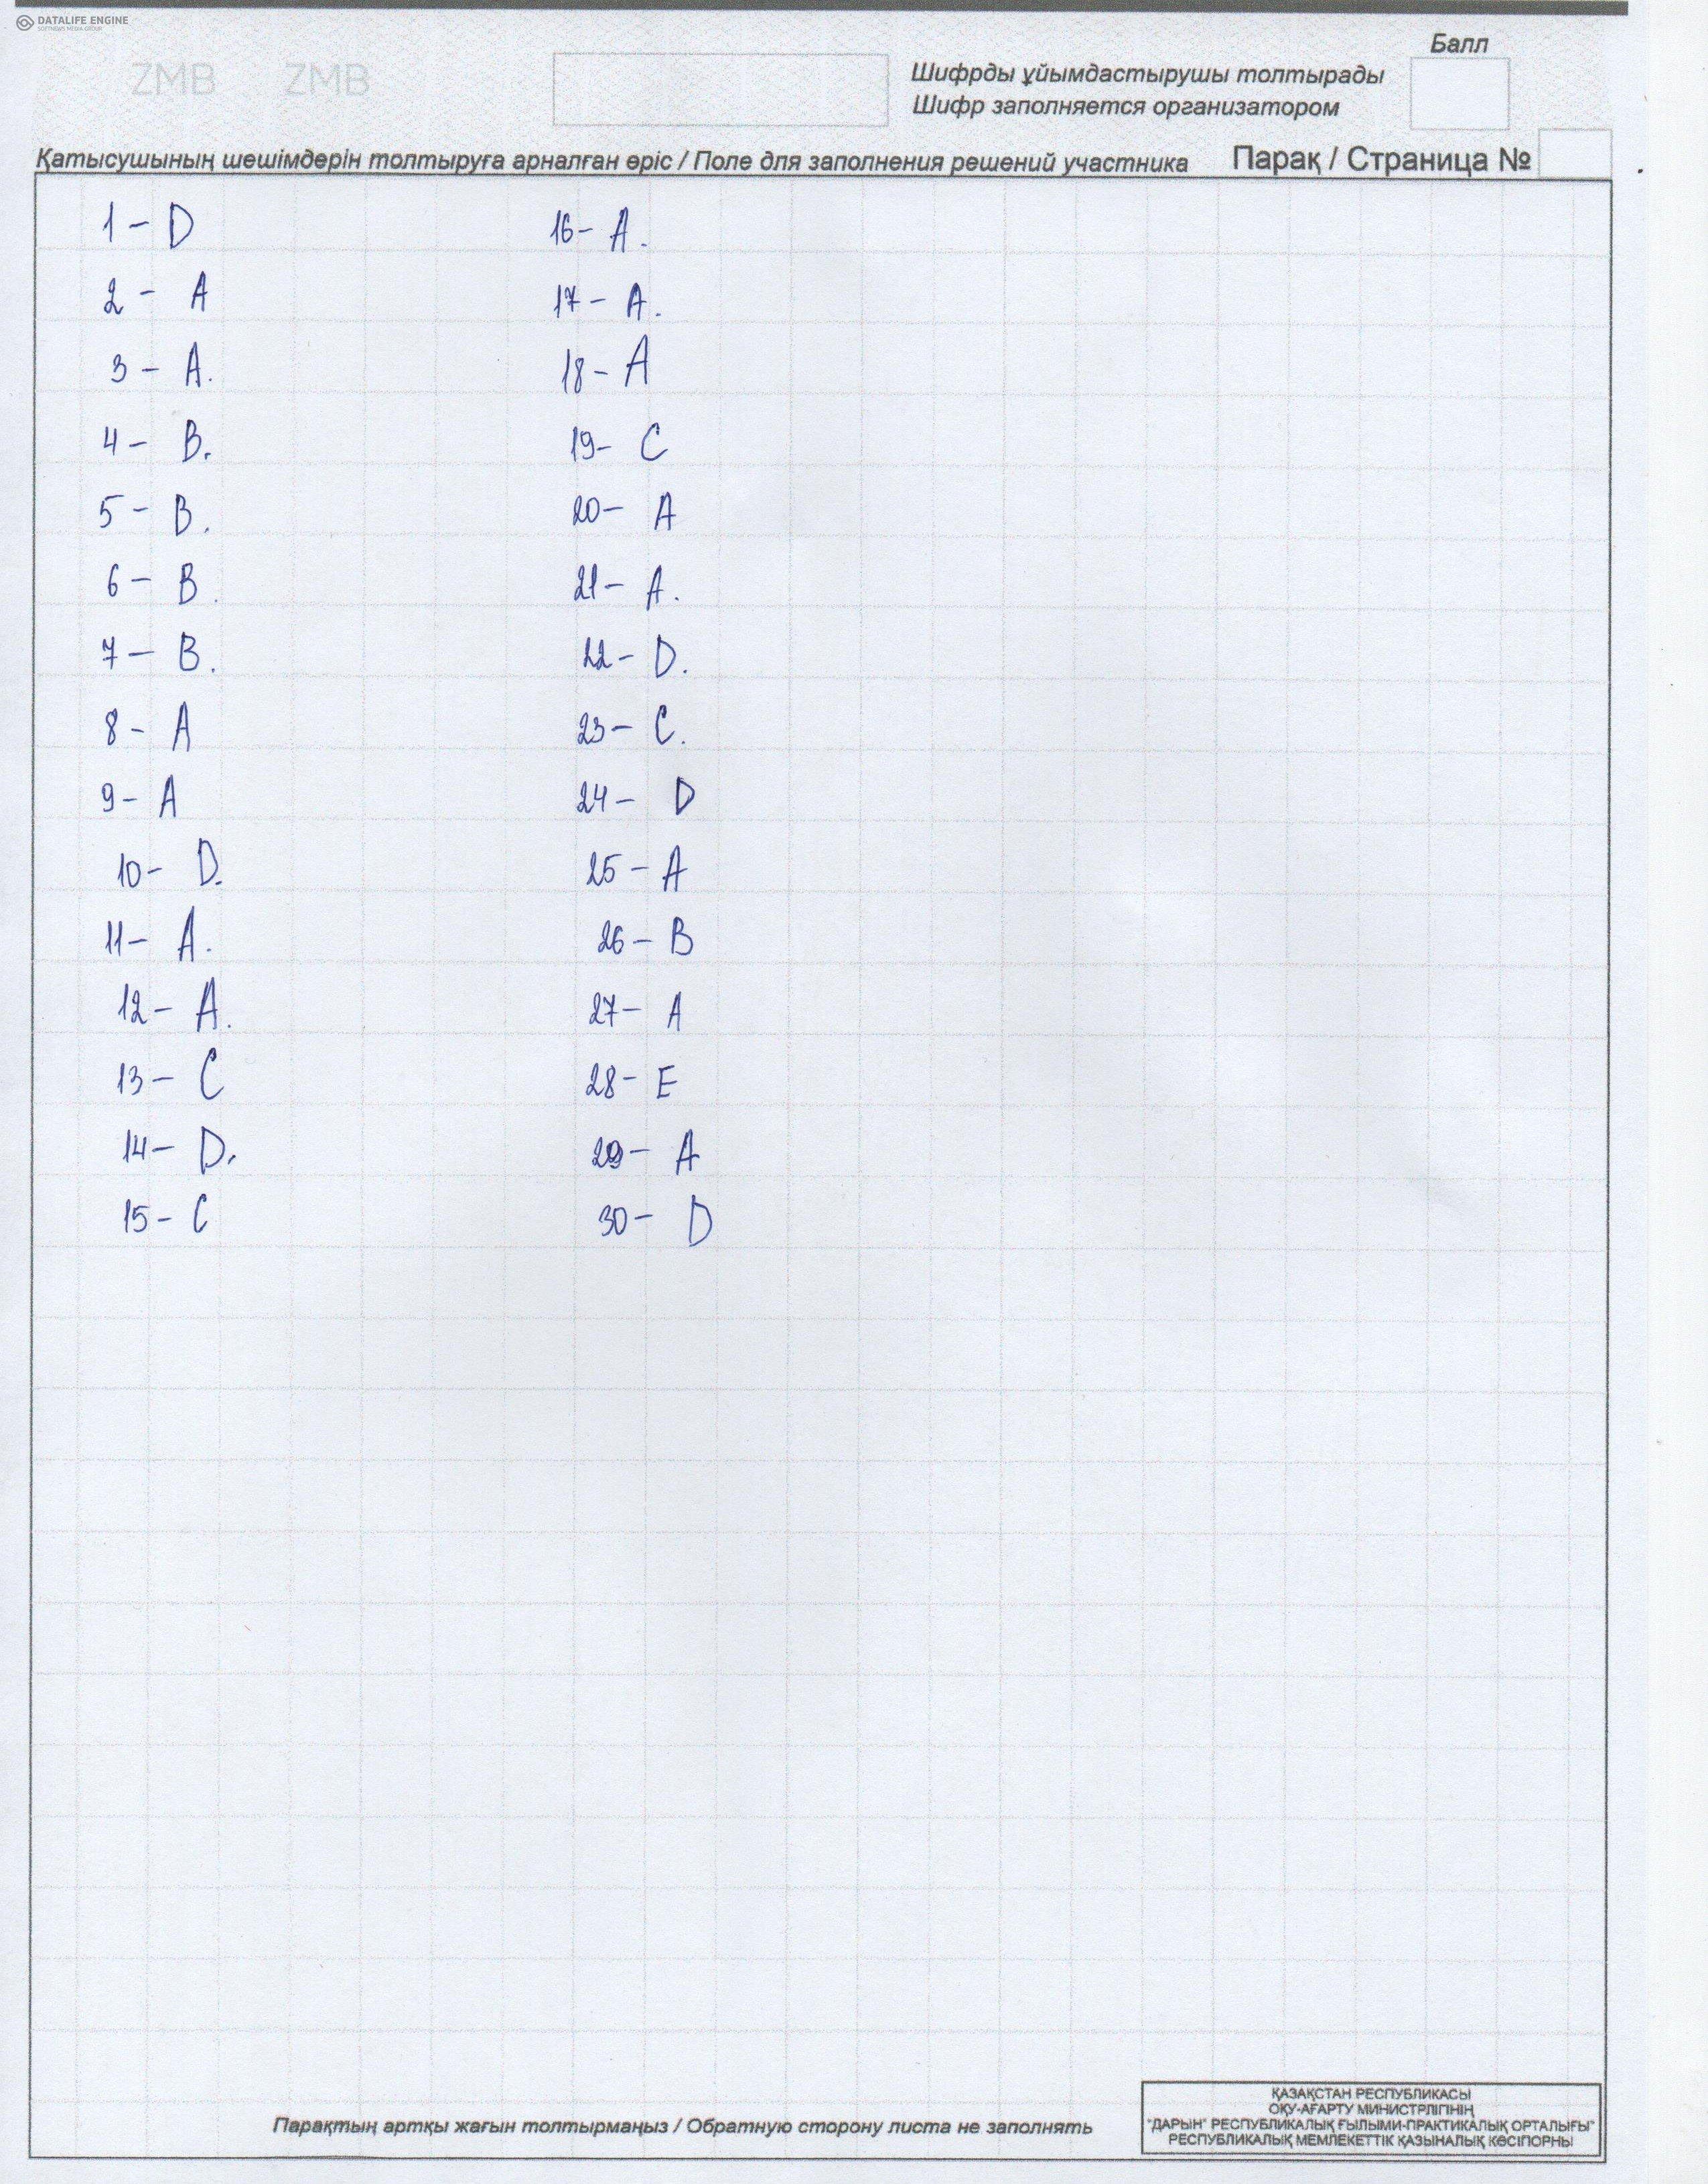 DATALIFE ENGINE
SOFTNEWS MEDIA GROUP
ZMB ZMB
Балл
Шифрды ұйымдастырушы толтырады
Шифр заполняется организатором
Қатысушының шешімдерін толтыруға арналған өріс / Поле для заполнения решений участника Парақ / Страница №
1 - D
2 - A
3 - A.
4 - B.
5 - B.
6 - B.
7 - B.
8 - A
9 - A
10 - D.
11 - A.
12 - A.
13 - C
14 - D.
15 - C
16 - A.
17 - A.
18 - A
19 - C
20 - A
21 - A.
22 - D.
23 - C.
24 - D
25 - A
26 - B
27 - A
28 - E
29 - A
30 - D
Парақтың артқы жағын толтырмаңыз / Обратную сторону листа не заполнять
ҚАЗАҚСТАН РЕСПУБЛИКАСЫ
ОҚУ-АҒАРТУ МИНИСТРЛІГІНІҢ
"ДАРЫН" РЕСПУБЛИКАЛЫҚ ҒЫЛЫМИ-ПРАКТИКАЛЫҚ ОРТАЛЫҒЫ"
РЕСПУБЛИКАЛЫҚ МЕМЛЕКЕТТІК ҚАЗЫНАЛЫҚ КӘСІПОРНЫ